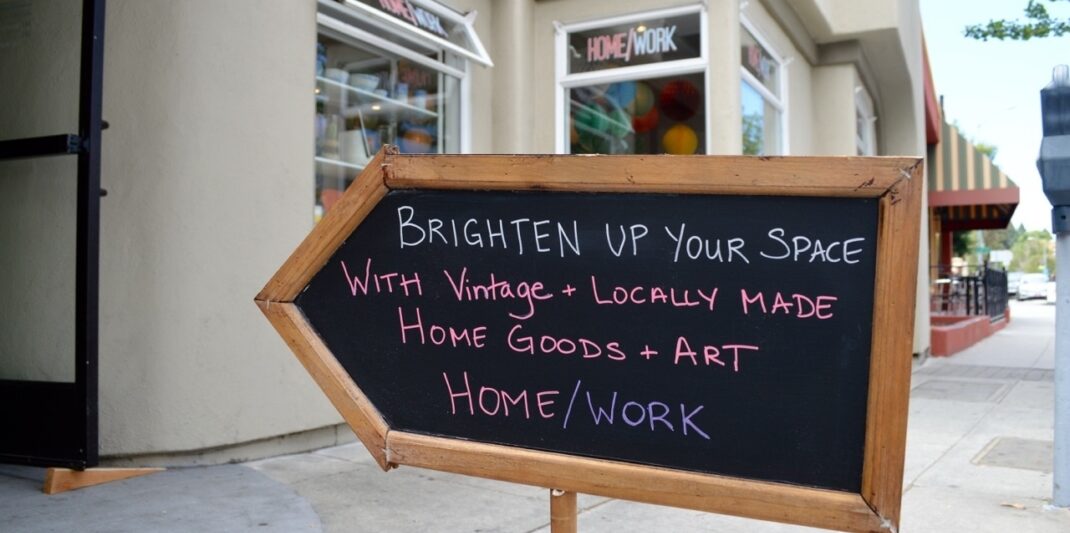 HOME/WORK
HOME/WORK
BRIGHTEN UP YOUR SPACE
WITH Vintage + LOCALLY MADE
HOME GOODS + ART
HOME/WORK